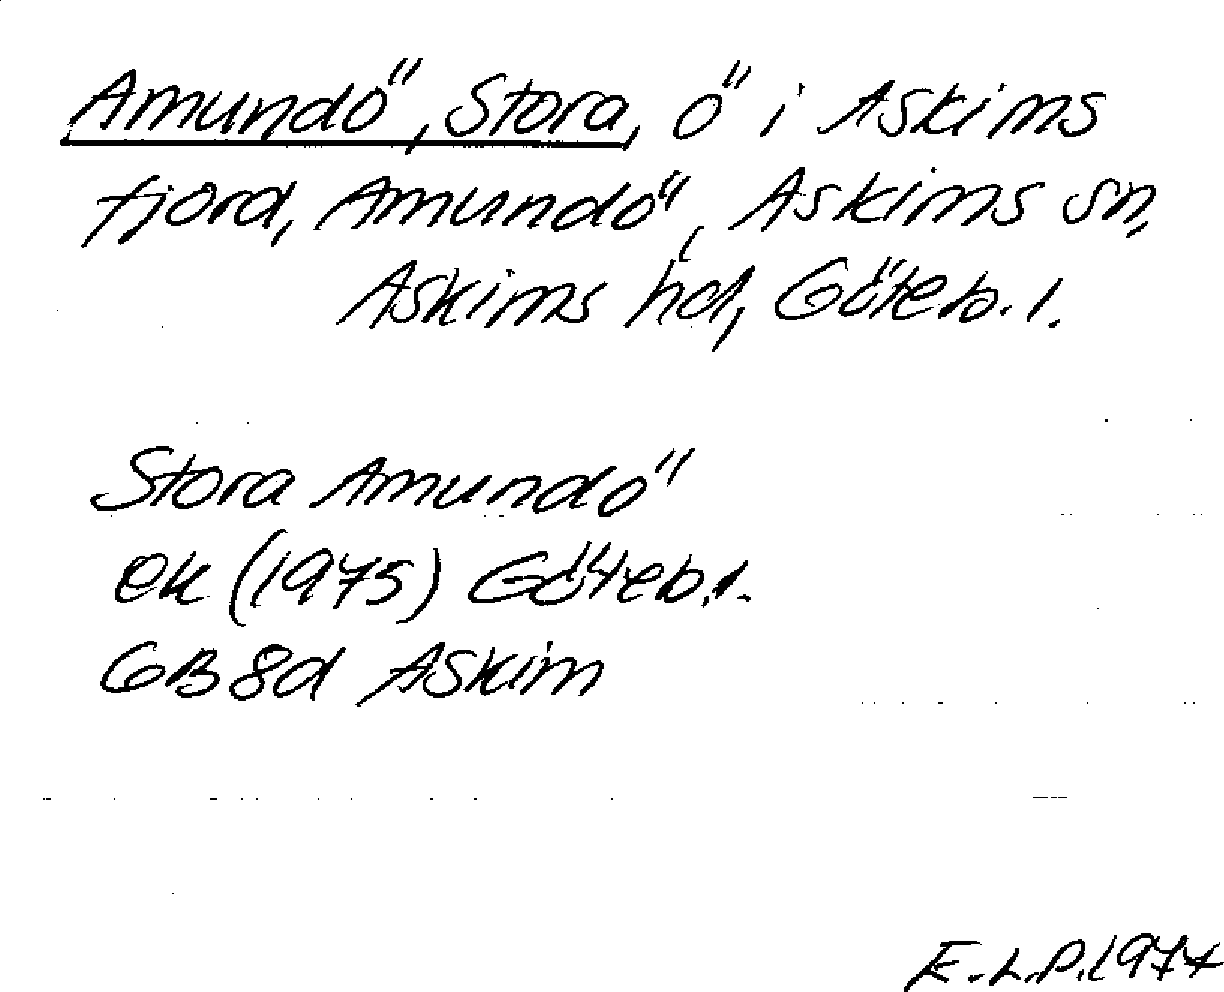 Amundö, Stora, ö i Askims
fjord, Amundö, Askims sn,
Askims hd, Göteb. l.
Stora Amundö
ek (1975) Göteb.l.
GB 8d Askim
E.L.P. 1977